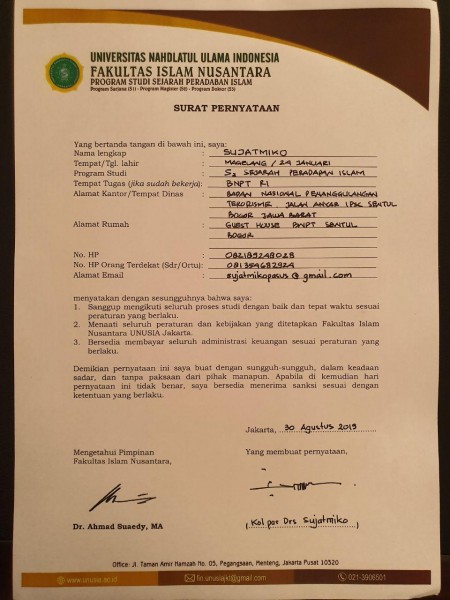 UNIVERSITAS NAHDLATUL ULAMA INDONESIA
FAKULTAS ISLAM NUSANTARA
PROGRAM STUDI SEJARAH PERADABAN ISLAM
Program Sarjana (S1) - Program Magister (S2) - Program Doktor (S3)
SURAT PERNYATAAN
Yang bertanda tangan di bawah ini, saya:
Nama lengkap : SUJATMIKO
Tempat/Tgl. lahir : MAGELANG / 24 JANUARI
Program Studi : S2 SEJARAH PERADAPAN ISLAM
Tempat Tugas (jika sudah bekerja): BNPT RI
Alamat Kantor/Tempat Dinas : BADAN NASIONAL PENANGGULANGAN
TERORISME. JALAN ANYAR IPSC SENTUL
BOGOR JAWA BARAT
Alamat Rumah : GUEST HOUSE BNPT SENTUL
BOGOR
No. HP : 082189248028
No. HP Orang Terdekat (Sdr/Ortu): 081354682924
Alamat Email : sujatmikopasus@gmail.com
menyatakan dengan sesungguhnya bahwa saya:
1. Sanggup mengikuti seluruh proses studi dengan baik dan tepat waktu sesuai
peraturan yang berlaku.
2. Menaati seluruh peraturan dan kebijakan yang ditetapkan Fakultas Islam
Nusantara UNUSIA Jakarta.
3. Bersedia membayar seluruh administrasi keuangan sesuai peraturan yang
berlaku.
Demikian pernyataan ini saya buat dengan sungguh-sungguh, dalam keadaan
sadar, dan tanpa paksaan dari pihak manapun. Apabila di kemudian hari
pernyataan ini tidak benar, saya bersedia menerima sanksi sesuai dengan
ketentuan yang berlaku.
Jakarta, 30 Agustus 2019
Mengetahui Pimpinan
Fakultas Islam Nusantara,
Yang membuat pernyataan,
Dr. Ahmad Suaedy, MA
(Kol por Drs Sujatmiko)
Office: Jl. Taman Amir Hamzah No. 05, Pegangsaan, Menteng, Jakarta Pusat 10320
www.unusia.ac.id
fin.unusiajkt@gmail.com
021-3906501